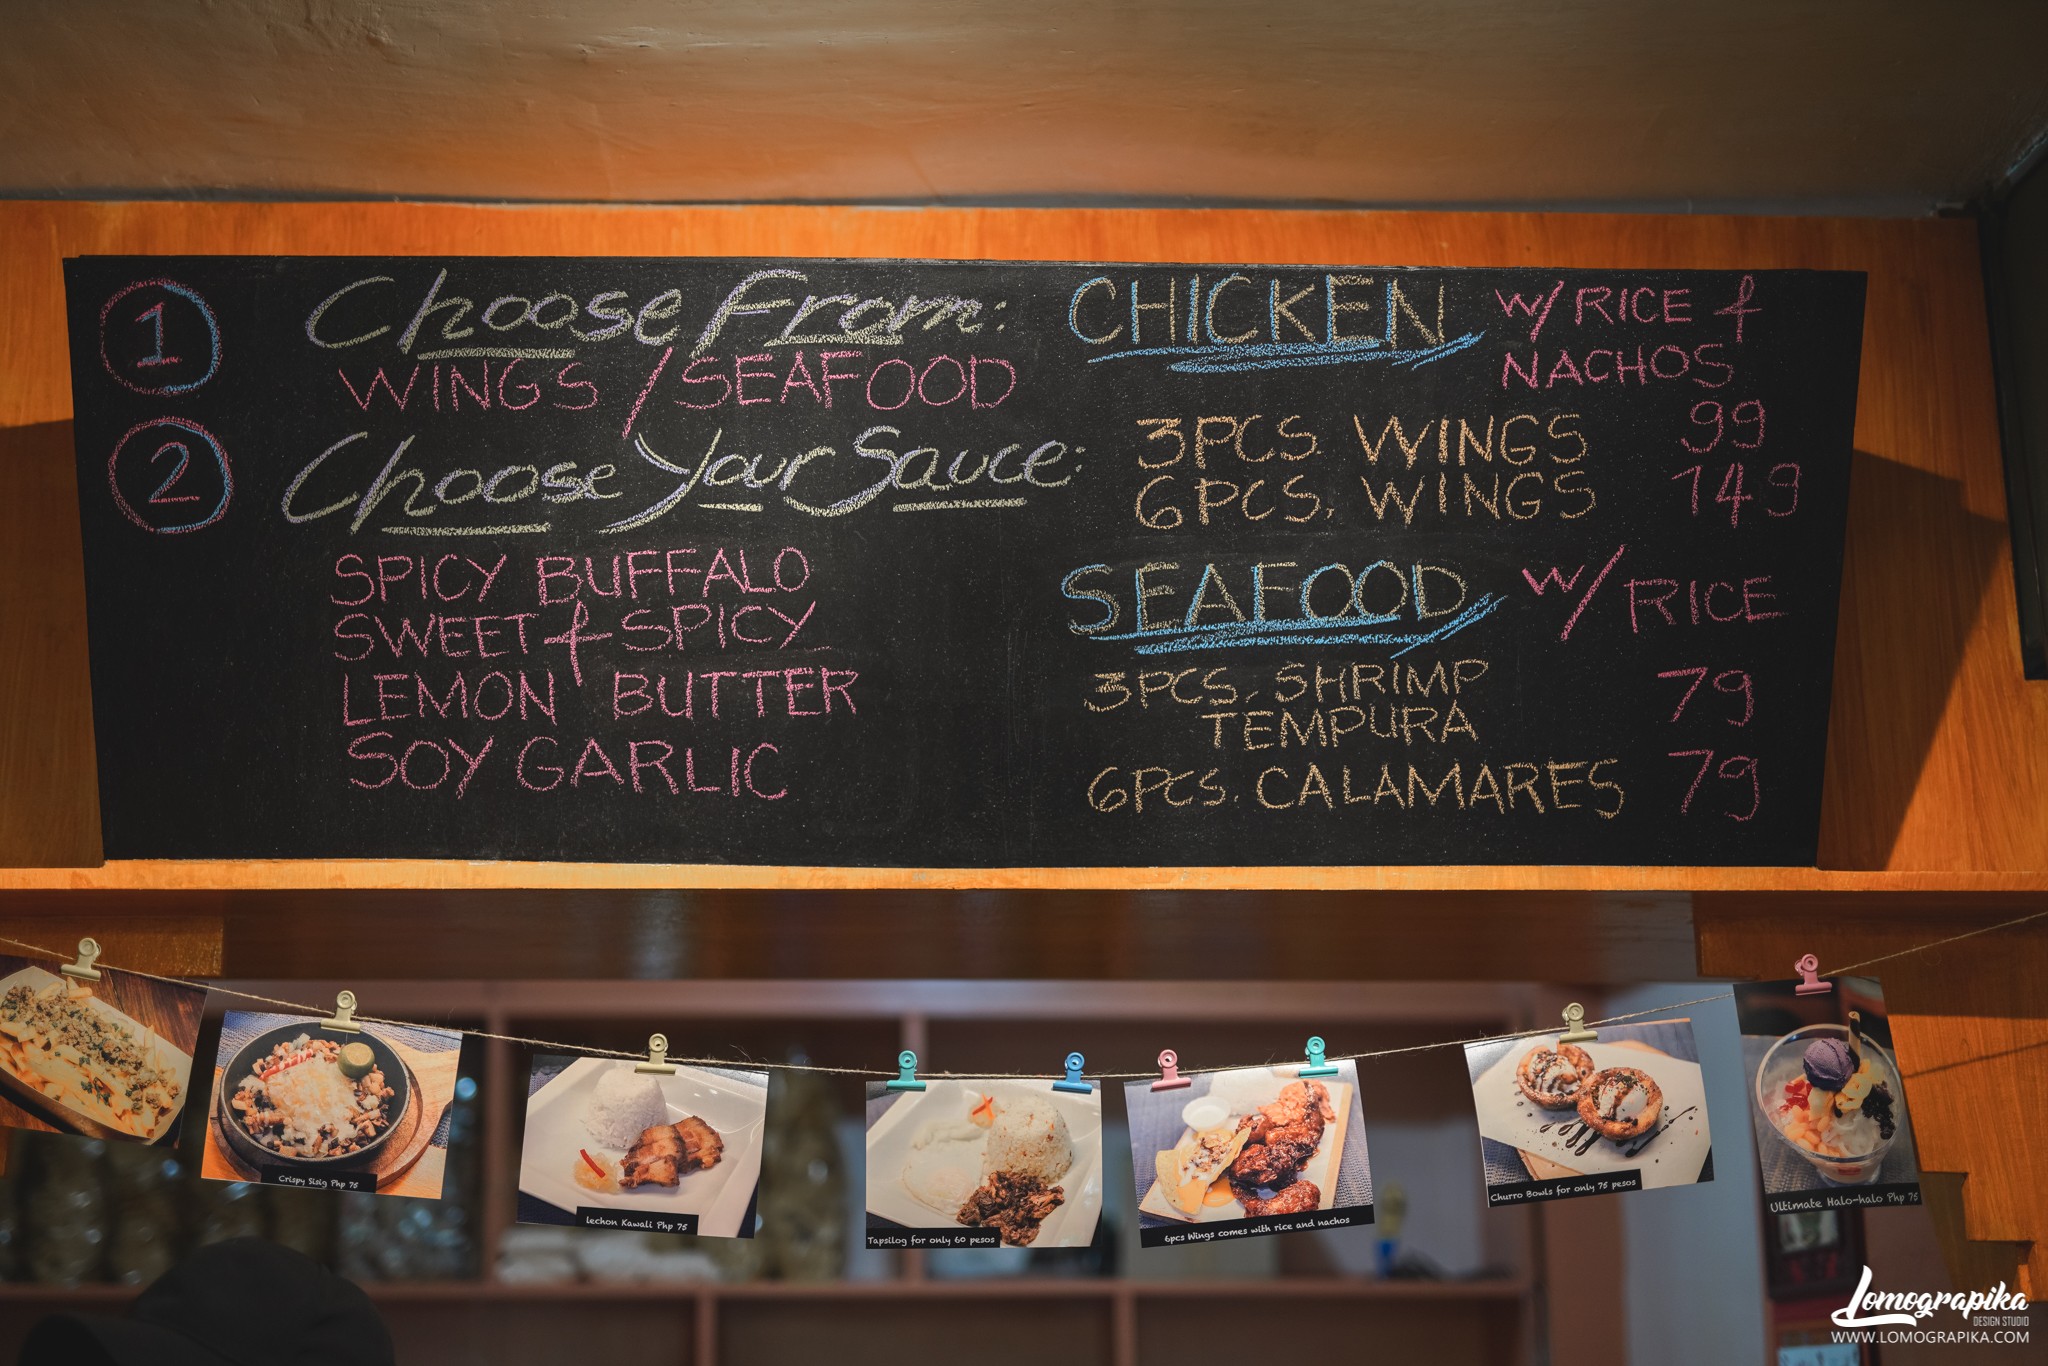 1
Choose From:
WINGS / SEAFOOD
2
Choose Your Sauce:
SPICY BUFFALO
SWEET & SPICY
LEMON BUTTER
SOY GARLIC
CHICKEN W/ RICE &
NACHOS
3PCS. WINGS 99
6PCS. WINGS 149
SEAFOOD W/ RICE
3PCS. SHRIMP 79
TEMPURA
6PCS. CALAMARES 79
Crispy Sisig Php 75
lechon Kawali Php 75
Tapsilog for only 60 pesos
6pcs Wings comes with rice and nachos
Churro Bowls for only 75 pesos
Ultimate Halo-halo Php 75
Lomograpika
DESIGN STUDIO
WWW.LOMOGRAPIKA.COM